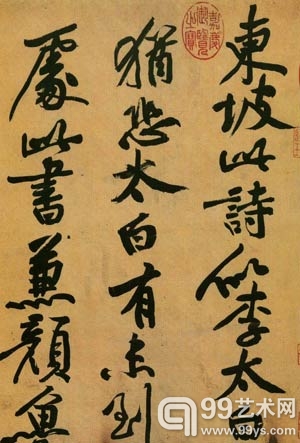 東坡此詩似李太白
猶恐太白有未到
處此書兼顏魯
嘉慶御覽之寶
99艺术网
www.99ys.com